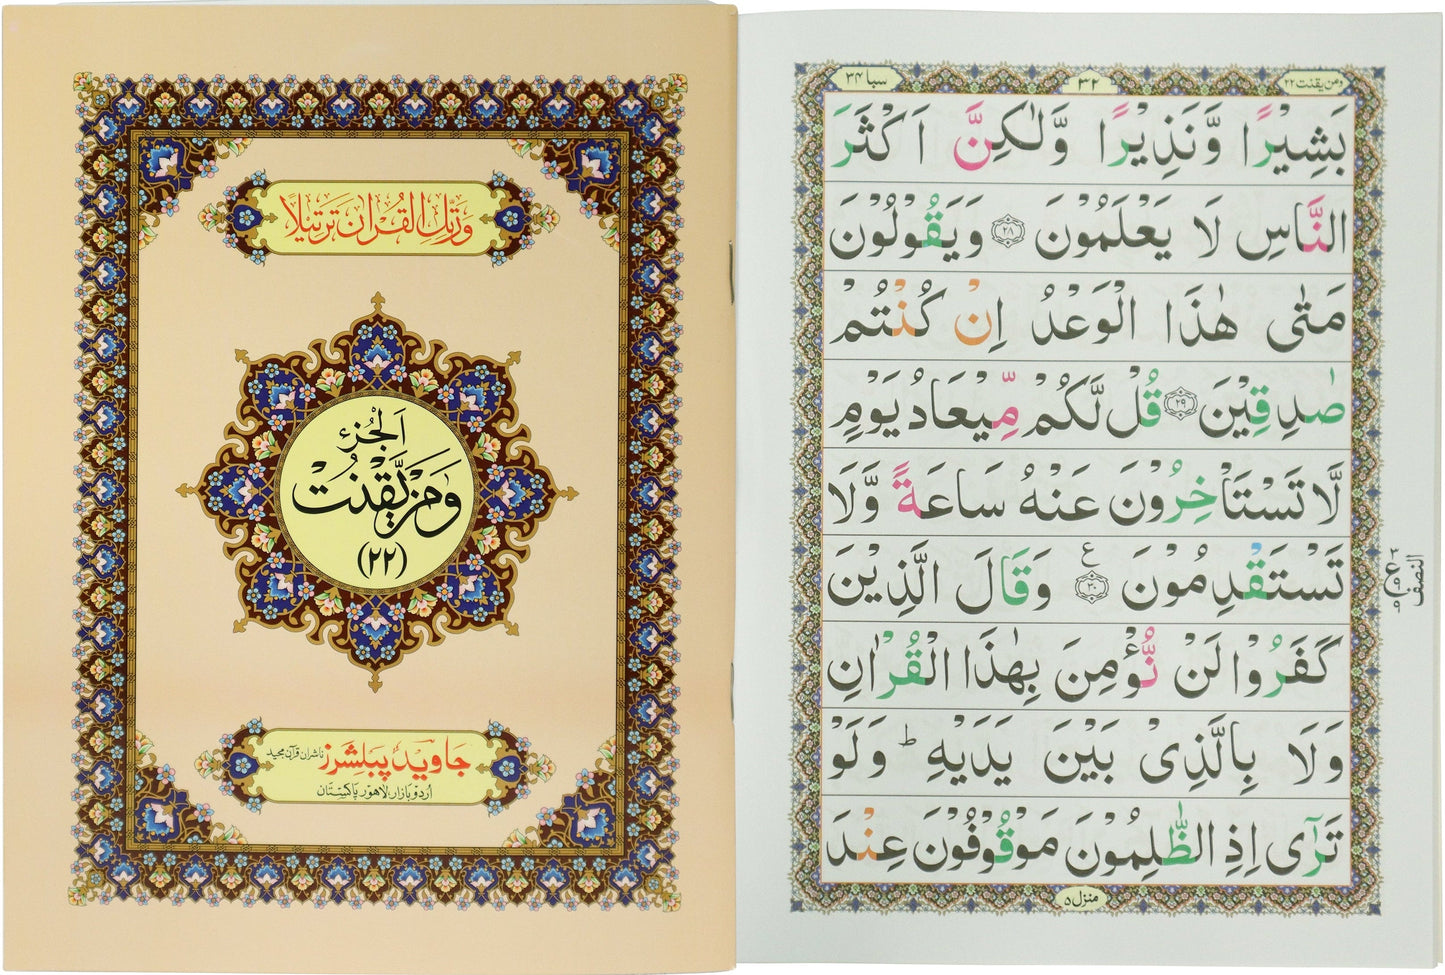 وَرَتِّلِ الْقُرْاٰنَ تَرْتِيْلًا
اَلْجُزْءُ
وَمَنْ يَّقْنُتْ
(٢٢)
جاوید پبلشرز ناشران قرآن مجید
اردو بازار لاہور پاکستان
ومن يقنت ٢٢
٣٢
سبا ٣٤
بَشِيْرًا وَّنَذِيْرًا وَّلٰكِنَّ اَكْثَرَ
النَّاسِ لَا يَعْلَمُوْنَ ۝٢٨ وَيَقُوْلُوْنَ
مَتٰى هٰذَا الْوَعْدُ اِنْ كُنْتُمْ
صٰدِقِيْنَ ۝٢٩ قُلْ لَّكُمْ مِّيْعَادُ يَوْمٍ
لَّا تَسْتَاْخِرُوْنَ عَنْهُ سَاعَةً وَّلَا
تَسْتَقْدِمُوْنَ ۝٣٠ ع وَقَالَ الَّذِيْنَ
كَفَرُوْا لَنْ نُّؤْمِنَ بِهٰذَا الْقُرْاٰنِ
وَلَا بِالَّذِيْ بَيْنَ يَدَيْهِ ؕ وَلَوْ
تَرٰٓى اِذِ الظّٰلِمُوْنَ مَوْقُوْفُوْنَ عِنْدَ
النصف
منزل ٥